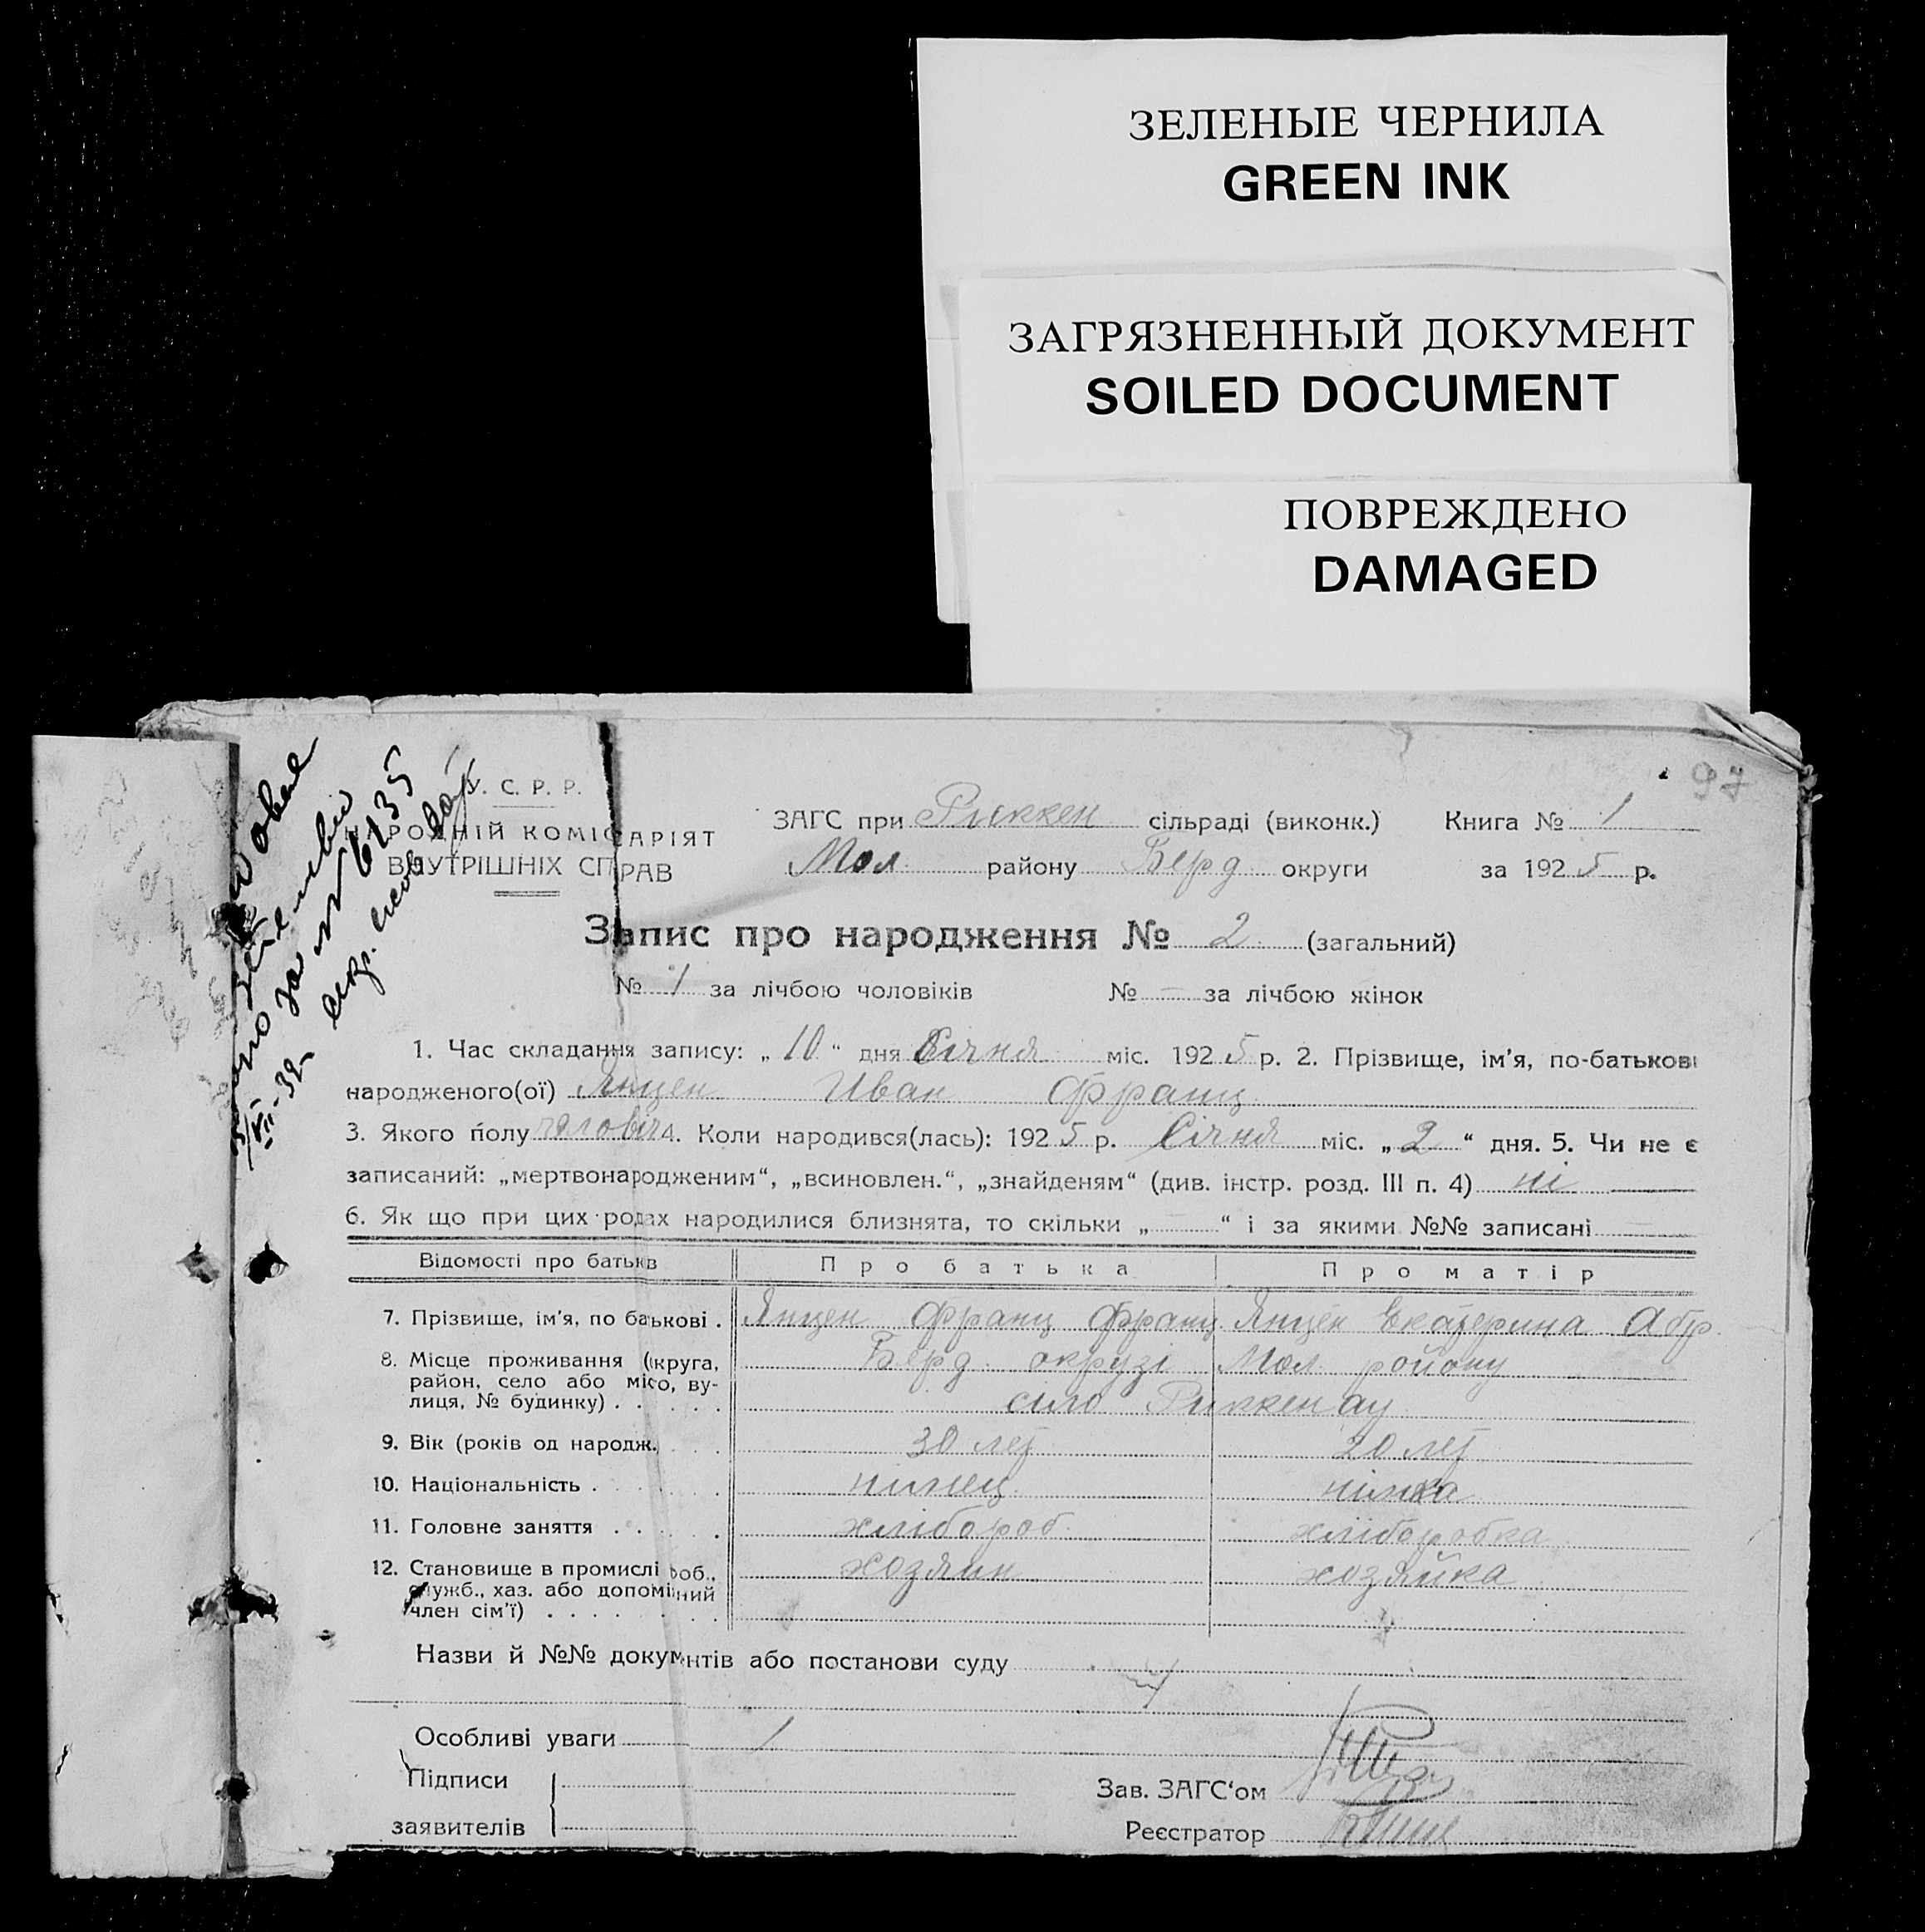 ЗЕЛЕНЫЕ ЧЕРНИЛА
GREEN INK
ЗАГРЯЗНЕННЫЙ ДОКУМЕНТ
SOILED DOCUMENT
ПОВРЕЖДЕНО
DAMAGED
97
У. С. Р. Р.
РОДНІЙ КОМІСАРІЯТ
ВНУТРІШНІХ СПРАВ
за № 6135
ЗАГС при Риккен сільраді (виконк.) Книга № 1
Мол. району Берд. округи за 1925 р.
Запис про народження № 2 (загальний)
№ 1 за лічбою чоловіків № — за лічбою жінок
1. Час складання запису: „10“ дня Січня міс. 1925 р. 2. Прізвище, ім'я, по-батькові
народженого(ої) Янцен Иван Франц
3. Якого полу чоловіч 4. Коли народився(лась): 1925 р. Січня міс. „2“ дня. 5. Чи не є
записаний: „мертвонародженим“, „всиновлен.“, „знайденям“ (див. інстр. розд. III п. 4) ні
6. Як що при цих родах народилися близнята, то скільки „—“ і за якими №№ записані —
Відомості про батьків Про батька Про матір
7. Прізвище, ім'я, по батькові . Янцен Франц Франц Янцен Екатерина Абр.
8. Місце проживання (округа, Берд. окрузі Мол. району
район, село або місто, ву-
лиця, № будинку) . . . . сіло Риккенау
9. Вік (років од народж. . . . 30 лет 20 лет
10. Національність . . . . нимец німка
11. Головне заняття . . . . хлібороб хлібробка
12. Становище в промислі роб., хозяин хозяйка
служб., хаз. або допоміжний
член сім'ї) . . . . . .
Назви й №№ документів або постанови суду
Особливі уваги
Підписи
заявителів
Зав. ЗАГС'ом
Реєстратор